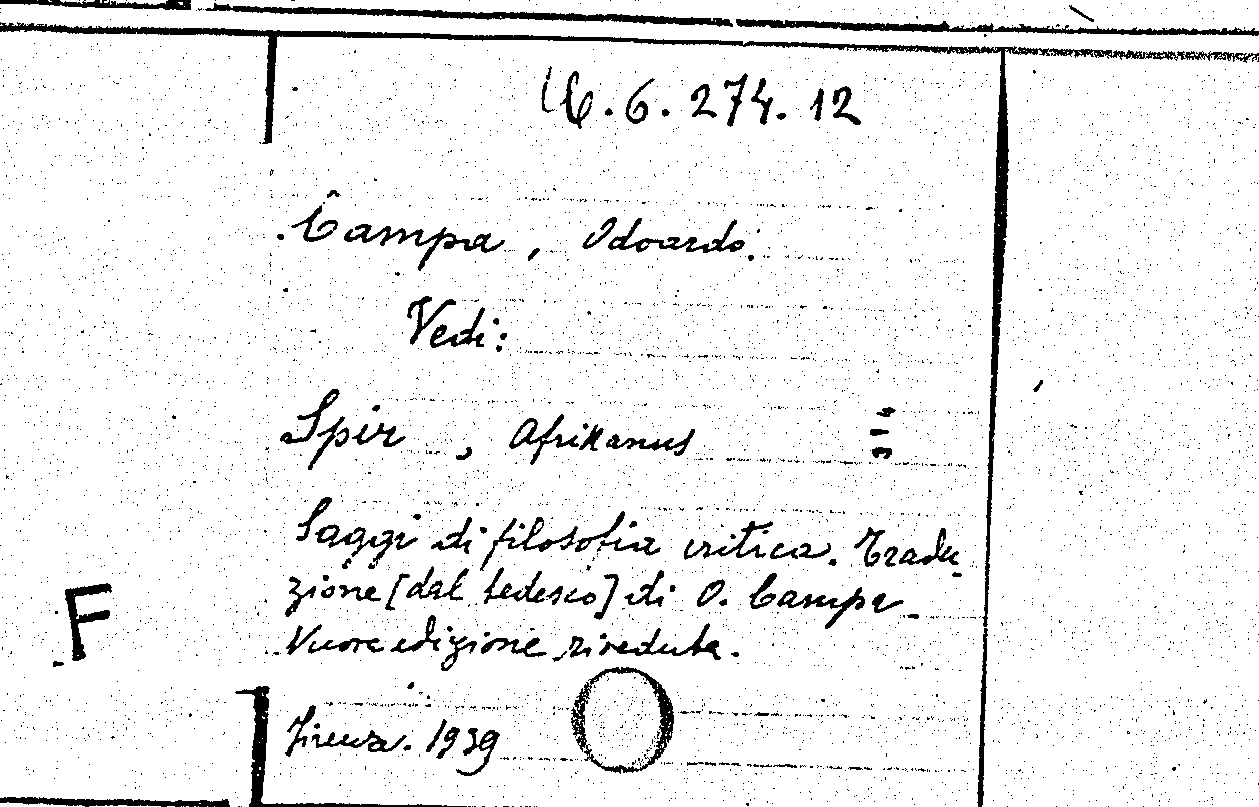 6.274.12
Campa, Odoardo.
Vedi:
Spir, Afrikanus
Saggi di filosofia critica. Tradu-
zione [dal tedesco] di O. Campa.
Nuova edizione riveduta.
F
Firenze. 1939